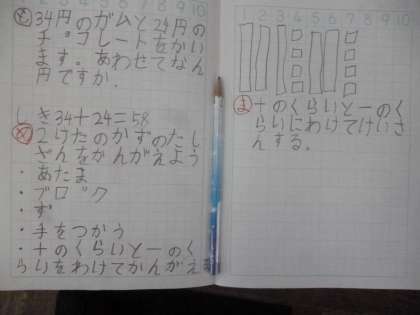 も 34円のガムと24円の
チョコレートをかい
ます。あわせてなん
円ですか。
しき34+24=58
め 2けたのかずのたし
ざんをかんがえよう
・あたま
・ブロック
・ず
・手をつかう
・十のくらいと一のく
らいをわけてかんがえ
ま 十のくらいと一のく
らいにわけてけいさ
んする。